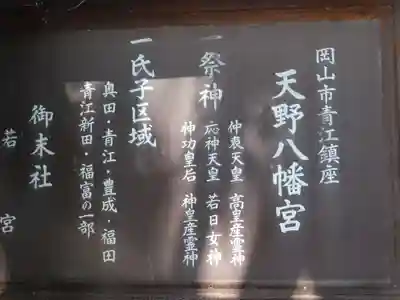 岡山市青江鎮座
天野八幡宮
一祭神
仲哀天皇 高皇産霊神
応神天皇 若日女神
神功皇后 神皇産霊神
一氏子区域
奥田・青江・豊成・福田
青江新田・福富の一部
御末社
若宮